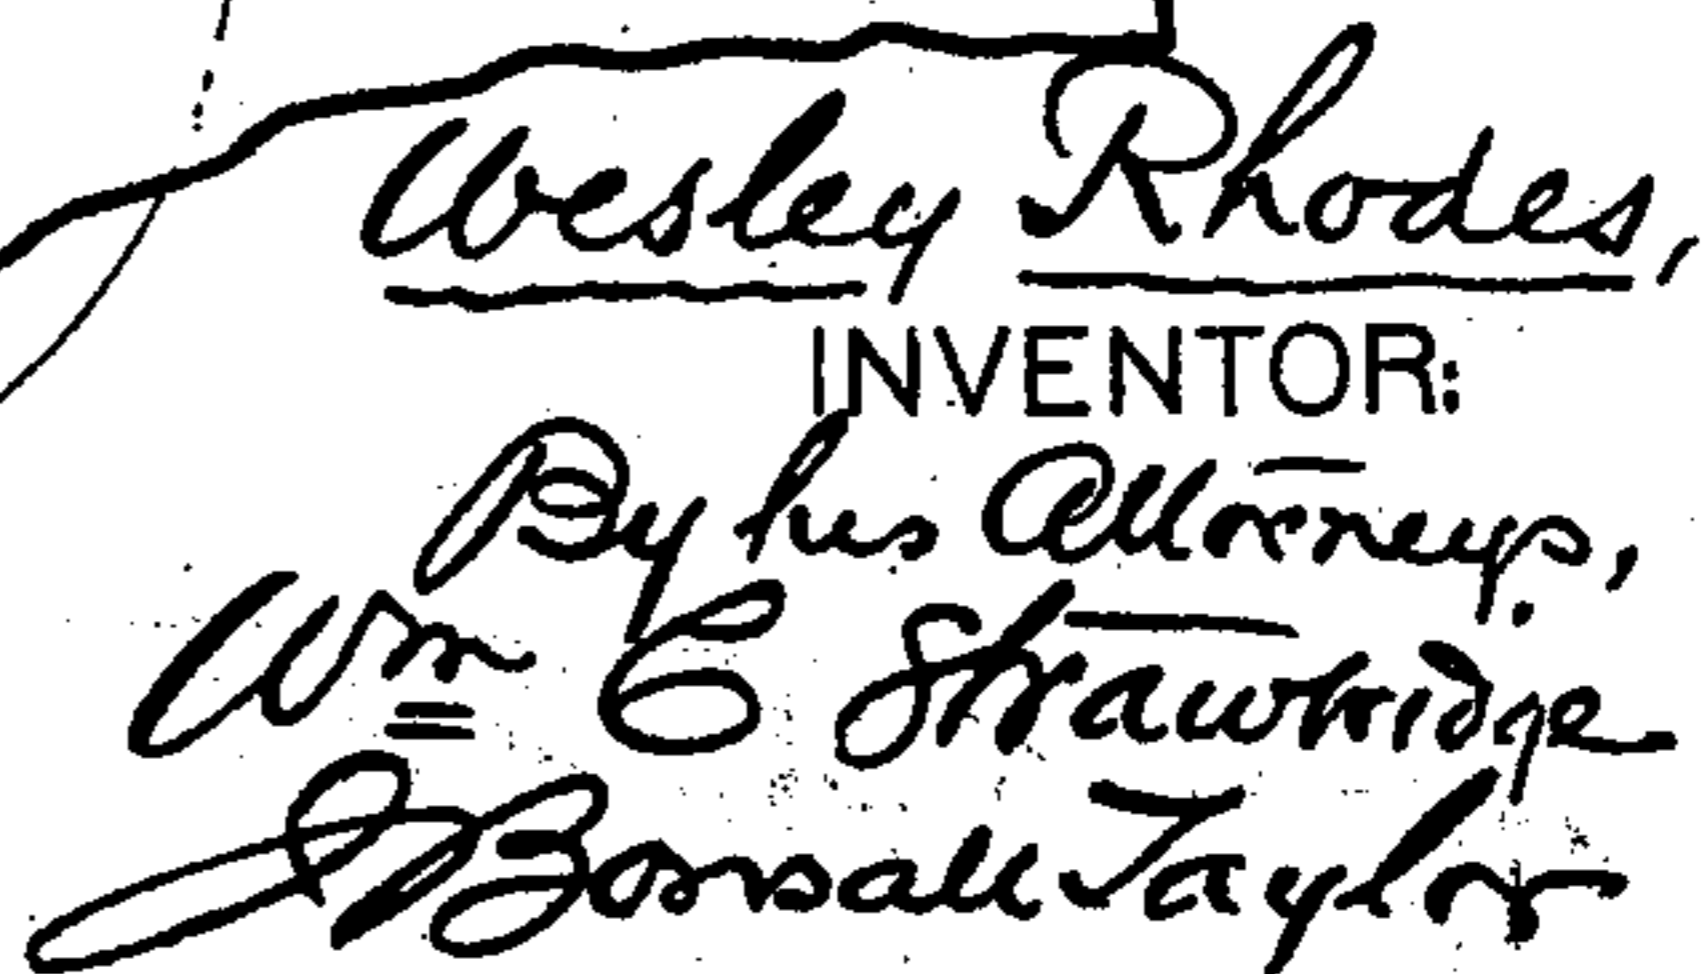 Wesley Rhodes,
INVENTOR:
By his Attorneys,
Wm C Strawbridge
J Bonsall Taylor